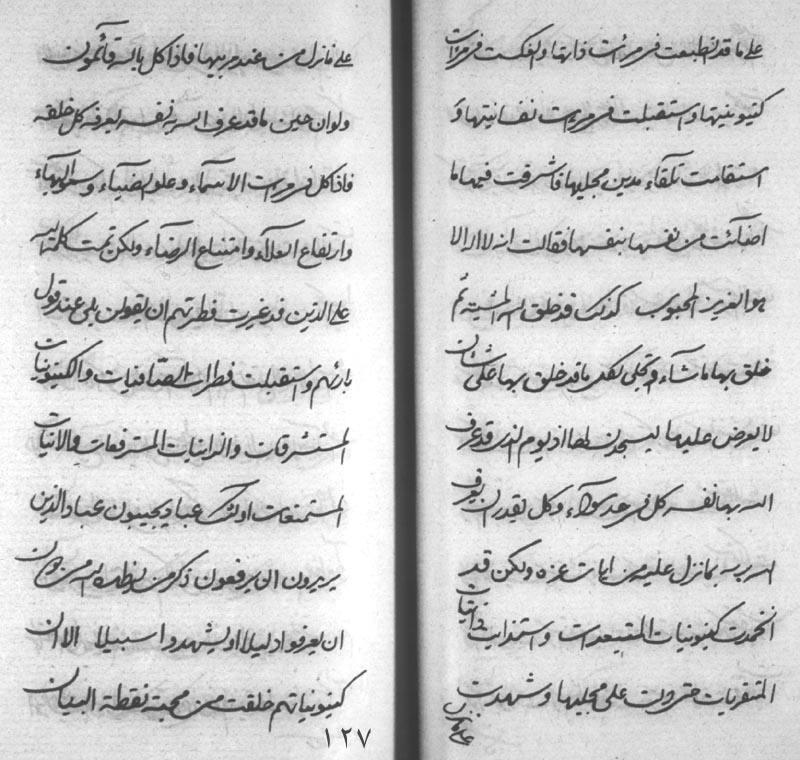 علی ما قد انطبعت فی مرءات ذاتها و انعکست فی مرءات
کینونیتها و استقبلت فی مرءات نفسانیتها و
استقامت تلقاء مدین مجلیها فاشرقت فیها ما
اضائت من نفسها بنفسها فقالت انه لا اله الا
هو العزیز المحبوب کذلک قد خلق الله المشیة ثم
خلق بها ما شاء و تجلی لکل ما قد خلق بها علی شان
لا یعرض علیها لیسجدن لها اذ یوم الذی قد عرف
الله بها نفسه کل فی حد سواء و کل یقدر ان یعرف
الله ربه بما نزل علیه من ایات عزه ولکن قد
انخمدت کینونیات المقبعدات و استذابت ذاتیات
المتقربات حتی دلت علی مجلیها و شهدت
علی ما نزل
علی ما نزل من عند ربها فاذا کل بالله قائمون
ولو ان حین ما قد عرف الله نفسه لیعرفه کل خلقه
فاذا کل فی مرءات الاسماء و علو الضیاء و سمو البهاء
و ارتفاع العلاء و امتناع الرضاء ولکن تمت کلمة الله
علی الذین قد غیرت فطرتهم ان یقولن بلی عند قول
بارئهم و استقبلت فطرات الصافیات و الکینونیات
المستشرقات و الذاتیات المسترفعات و الانیات
المستمنعات اولئک عباد یجیبون عباد الذین
یریدون ان یرفعون ذکر من یظهره الله من دون
ان یعرفوا دلیلا او یشهدوا سبیلا الا ان
کینونیاتهم خلقت من محبة نقطة البیان
۱۲۷